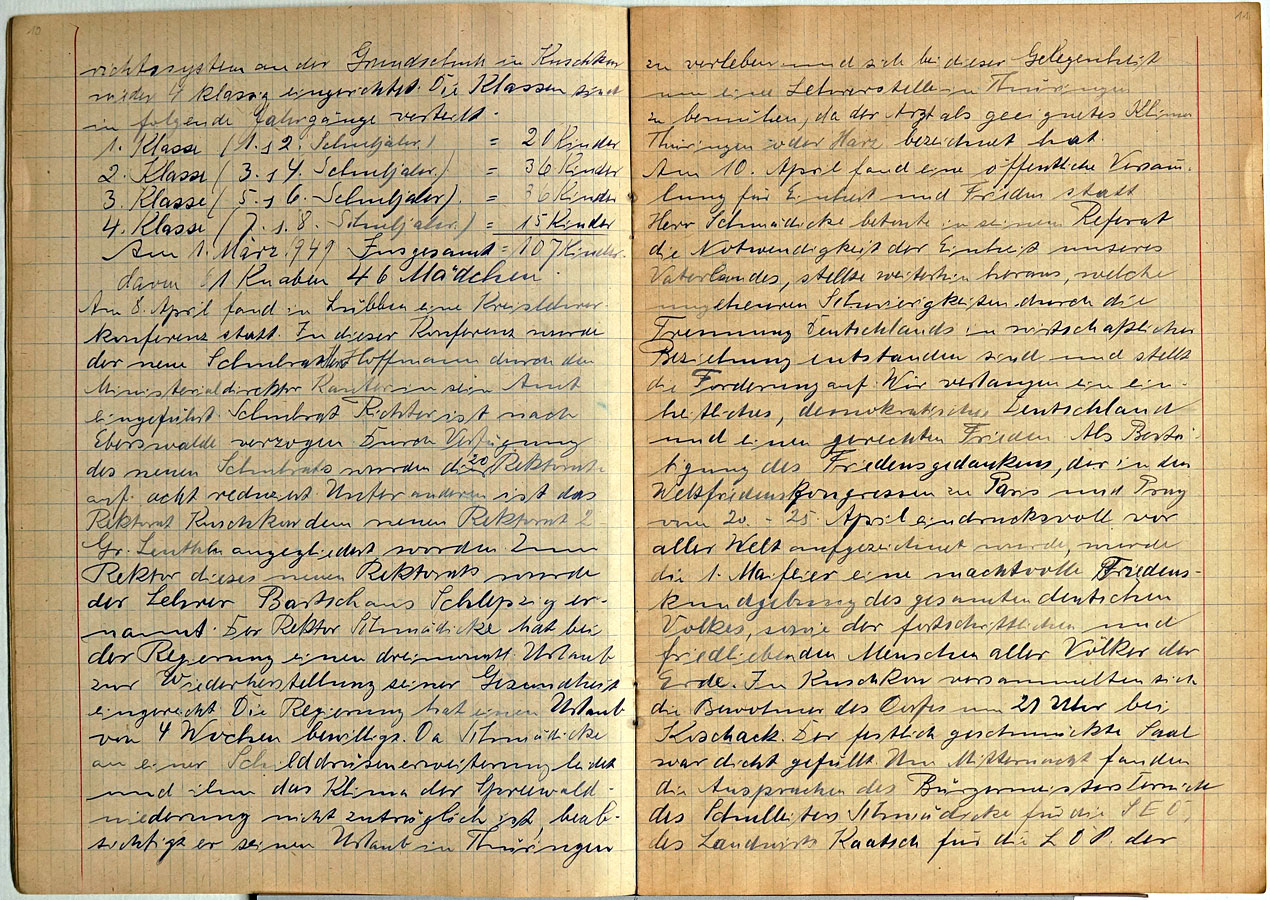 10
richtssystem an der Grundschule in Kuschkow
wieder 4 klassig eingerichtet. Die Klassen sind
in folgende Jahrgänge verteilt.
1. Klasse (1. u 2. Schuljahr.) = 20 Kinder
2. Klasse (3. u 4. Schuljahr.) = 36 Kinder
3. Klasse (5. u 6. Schuljahr). = 36 Kinder
4. Klasse (7. u. 8. Schuljahr.) = 15 Kinder
Am 1. März 1949 Insgesamt = 107 Kinder.
davon 61 Knaben 46 Mädchen.
Am 8. April fand in Lübben eine Kreislehrer-
konferenz statt. In dieser Konferenz wurde
der neue Schulrat Herr Hoffmann durch den
Ministerialdirektor Kantor in sein Amt
eingeführt. Schulrat Richter ist nach
Eberswalde verzogen. Durch Verfügung
des neuen Schulrats wurden die 20 Rektorate
auf acht reduziert. Unter anderen ist das
Rektorat Kuschkow dem neuen Rektorat 2
Gr. Leuthen angegliedert worden. Zum
Rektor dieses neuen Rektorats wurde
der Lehrer Bartsch aus Schlepzig er-
nannt. Der Rektor Schmädicke hat bei
der Regierung einen dreimonatl. Urlaub
zur Wiederherstellung seiner Gesundheit
eingereicht. Die Regierung hat einen Urlaub
von 4 Wochen bewilligt. Da Schmädicke
an einer Schilddrüsenerweiterung leidet
und ihm das Klima der Spreewald-
niederung nicht zuträglich ist, beab-
sichtigt er seinen Urlaub in Thüringen
11
zu verleben und sich bei dieser Gelegenheit
um eine Lehrerstelle in Thüringen
zu bemühen, da der Arzt als geeignetes Klima
Thüringen oder Harz bezeichnet hat.
Am 10. April fand eine öffentliche Versam-
lung für Einheit und Frieden statt
Herr Schmädicke betonte in seinem Referat
die Notwendigkeit der Einheit unseres
Vaterlandes, stellte weiterhin heraus, welche
ungeheuren Schwierigkeiten durch die
Trennung Deutschlands in wirtschaftlicher
Beziehung entstanden sind und stellt
die Forderung auf: Wir verlangen ein ein-
heitliches, demokratisches Deutschland
und einen gerechten Frieden. Als Bestä-
tigung des Friedensgedankens, der in den
Weltfriedenskongressen zu Paris und Prag
vom 20. - 25. April eindrucksvoll vor
aller Welt aufgezeichnet wurde, wurde
die 1. Maifeier eine machtvolle Friedens-
kundgebung des gesamten deutschen
Volkes, sowie der fortschrittlichen und
friedliebenden Menschen aller Völker der
Erde. In Kuschkow versammelten sich
die Bewohner des Dorfes um 21 Uhr bei
Koschack. Der festlich geschmückte Saal
war dicht gefüllt. Um Mitternacht fanden
die Ansprachen des Bürgermeisters
des Schulleiters Schmädicke für die S E D,
des Landwirts Kaatsch für die L D P. der